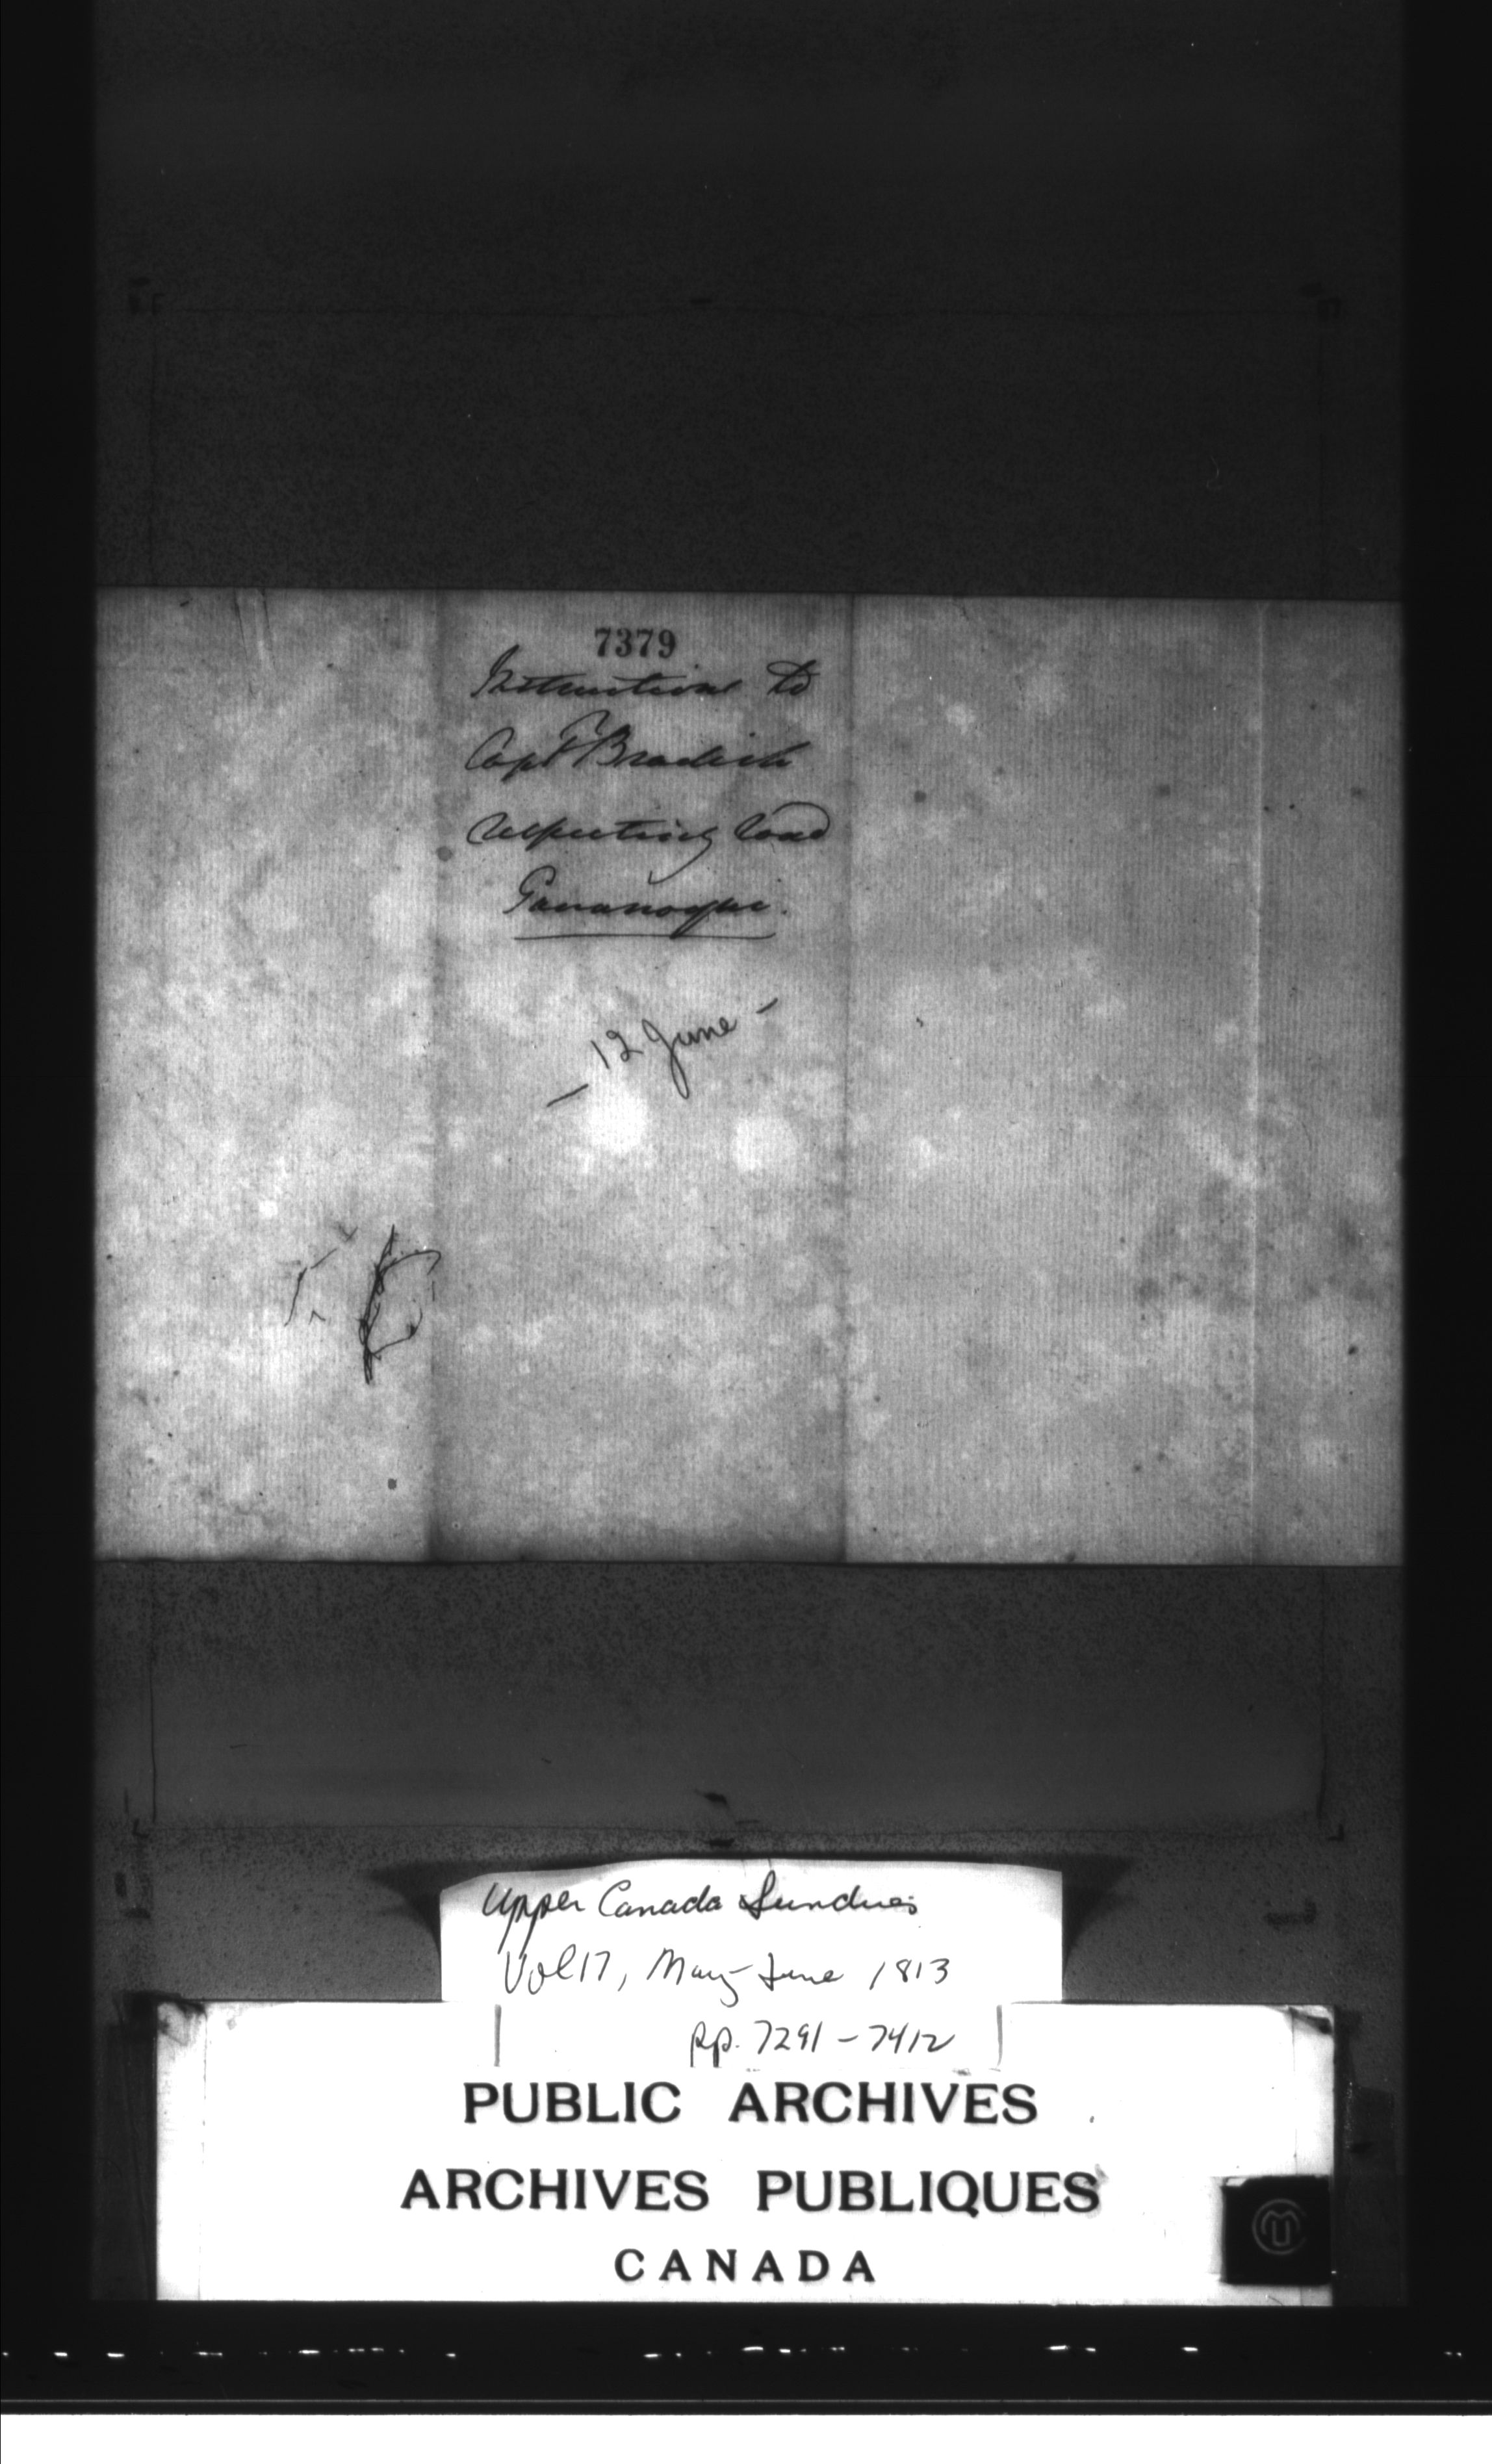 7379
Instructions to
Capt Bradish
respecting road
Gananoqui.
— 12 June —
Upper Canada Sundries
Vol 17, May-June 1813
pp. 7291-7412
PUBLIC ARCHIVES
ARCHIVES PUBLIQUES
CANADA